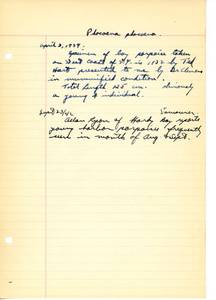 Phocoena phocoena.
April 2, 1939.
Specimen of bay porpoise taken
on West Coast of in 1932 by Ted
Hart presented to me by
in mummified condition.
Total length 125 cm. obviously
a young individual.
Sept 23/42 Vancouver.
Allan Lyon of Hardy Bay reports
young harbor porpoises frequently
seen in month of Aug & Sept.